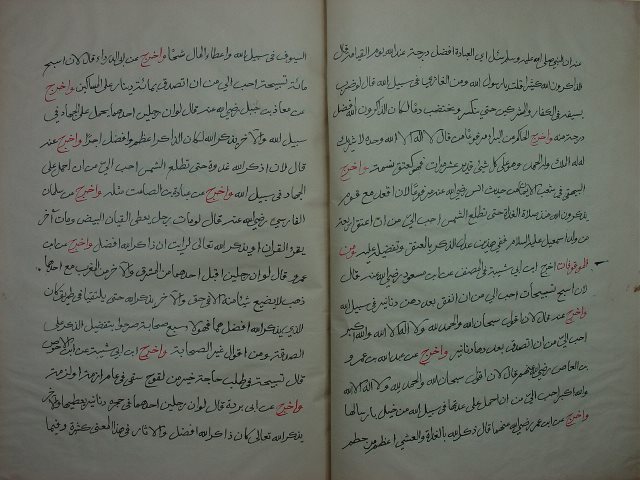 عند ان النبي صلى الله عليه وسلم سئل اي العبادة افضل درجة عند الله يوم القيامة قال
الذاكرون الله كثيرا قلت يا رسول الله ومن الغازي في سبيل الله قال لو ضرب
بسيفه في الكفار والمشركين حتى ينكسر ويختضب دما لكان الذاكرون الله افضل
درجة منه واخرج الحاكم من البراء مرفوعا من قال لا اله الا الله وحده لا شريك
له له الملك وله الحمد وهو على كل شئ قدير عشر مرات فهو كعتق نسمة واخرج
البيهقي في شعب الايمان من حديث انس رضي الله عنه مرفوعا لان اقعد مع قوم
يذكرون الله من صلاة الغداة حتى تطلع الشمس احب الي من ان اعتق اربعة
من ولد اسمعيل عليه السلام
اخرج ابن ابي شيبة في المصنف عن ابن مسعود رضي الله عنه قال
لان اسبح تسبيحات احب الي من ان انفق بعددهن دنانير في سبيل الله
واخرج عنه قال لان اقول سبحان الله والحمد لله ولا اله الا الله والله اكبر
احب الي من ان اتصدق بعددها دنانير واخرج عن عبد الله بن عمرو
بن العاص قال لان اقول سبحان الله والحمد لله ولا اله الا الله
والله اكبر احب الي من ان احمل على عددها في سبيل الله من خيل بارسانها
واخرج عن ابن عمر رضي الله عنهما قال ذكر الله بالغداة والعشي اعظم من حطم
السيوف في سبيل الله واعطاء المال سحا واخرج عن ابي الدرداء قال لان اسبح
مائة تسبيحة احب الي من ان اتصدق بمائة دينار على المساكين واخرج
عن معاذ بن جبل رضي الله عنه قال لو ان رجلين احدهما يحمل على الجياد في
سبيل الله والاخر يذكر الله لكان الذاكر اعظم وافضل اجرا واخرج عنه
قال لان اذكر الله غدوة حتى تطلع الشمس احب الي من ان احمل على
الجياد في سبيل الله واخرج عن عبادة بن الصامت مثله واخرج عن سلمان
الفارسي رضي الله عنه قال لو بات رجل يعطي القيان البيض وبات آخر
يقرء القران او يذكر الله تعالى لرايت ان ذاكر الله افضل واخرج عن ابن
عمرو قال لو ان رجلين اقبل احدهما من المشرق والاخر من المغرب مع احدهما
ذهب لا يضع شيئا منه الا في حق والاخر يذكر الله حتى يلتقيا في طريق كان
الذي يذكر الله افضلهما فهولاء سبع صحابة صرحوا بتفضيل الذكر على
الصدقة ومن اقوال غير الصحابة واخرج ابن ابي شيبة عن ابي الاحوص
قال تسبيحة في طلب حاجة خير من لقوح صفي في عام ازمة او لزمة
واخرج عن ابي بردة قال لو ان رجلين احدهما في حجره دنانير يعطيها والاخر
يذكر الله تعالى كان ذاكر الله افضل والاثار في هذا المعنى كثيرة وفيما